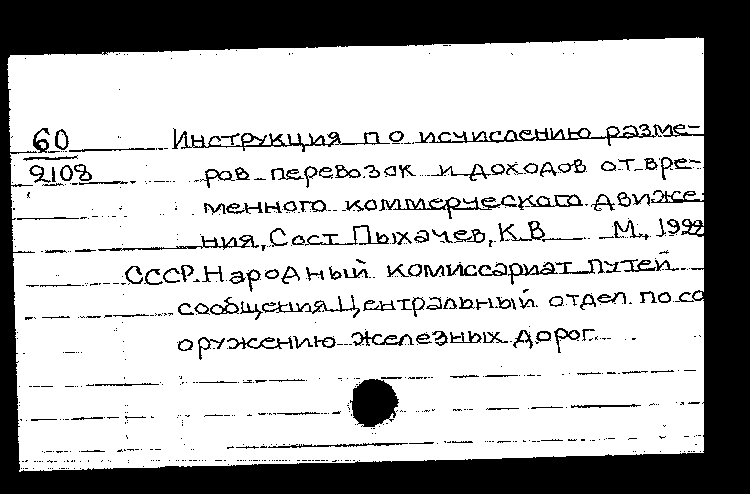 60 Инструкция по исчислению разме-
2108 ров перевозок и доходов от вре-
менного коммерческого движе-
ния, Сост Пыхачев, К.В М.,
СССР. Народный комиссариат путей
сообщения. Центральный отдел по со
оружению железных дорог.